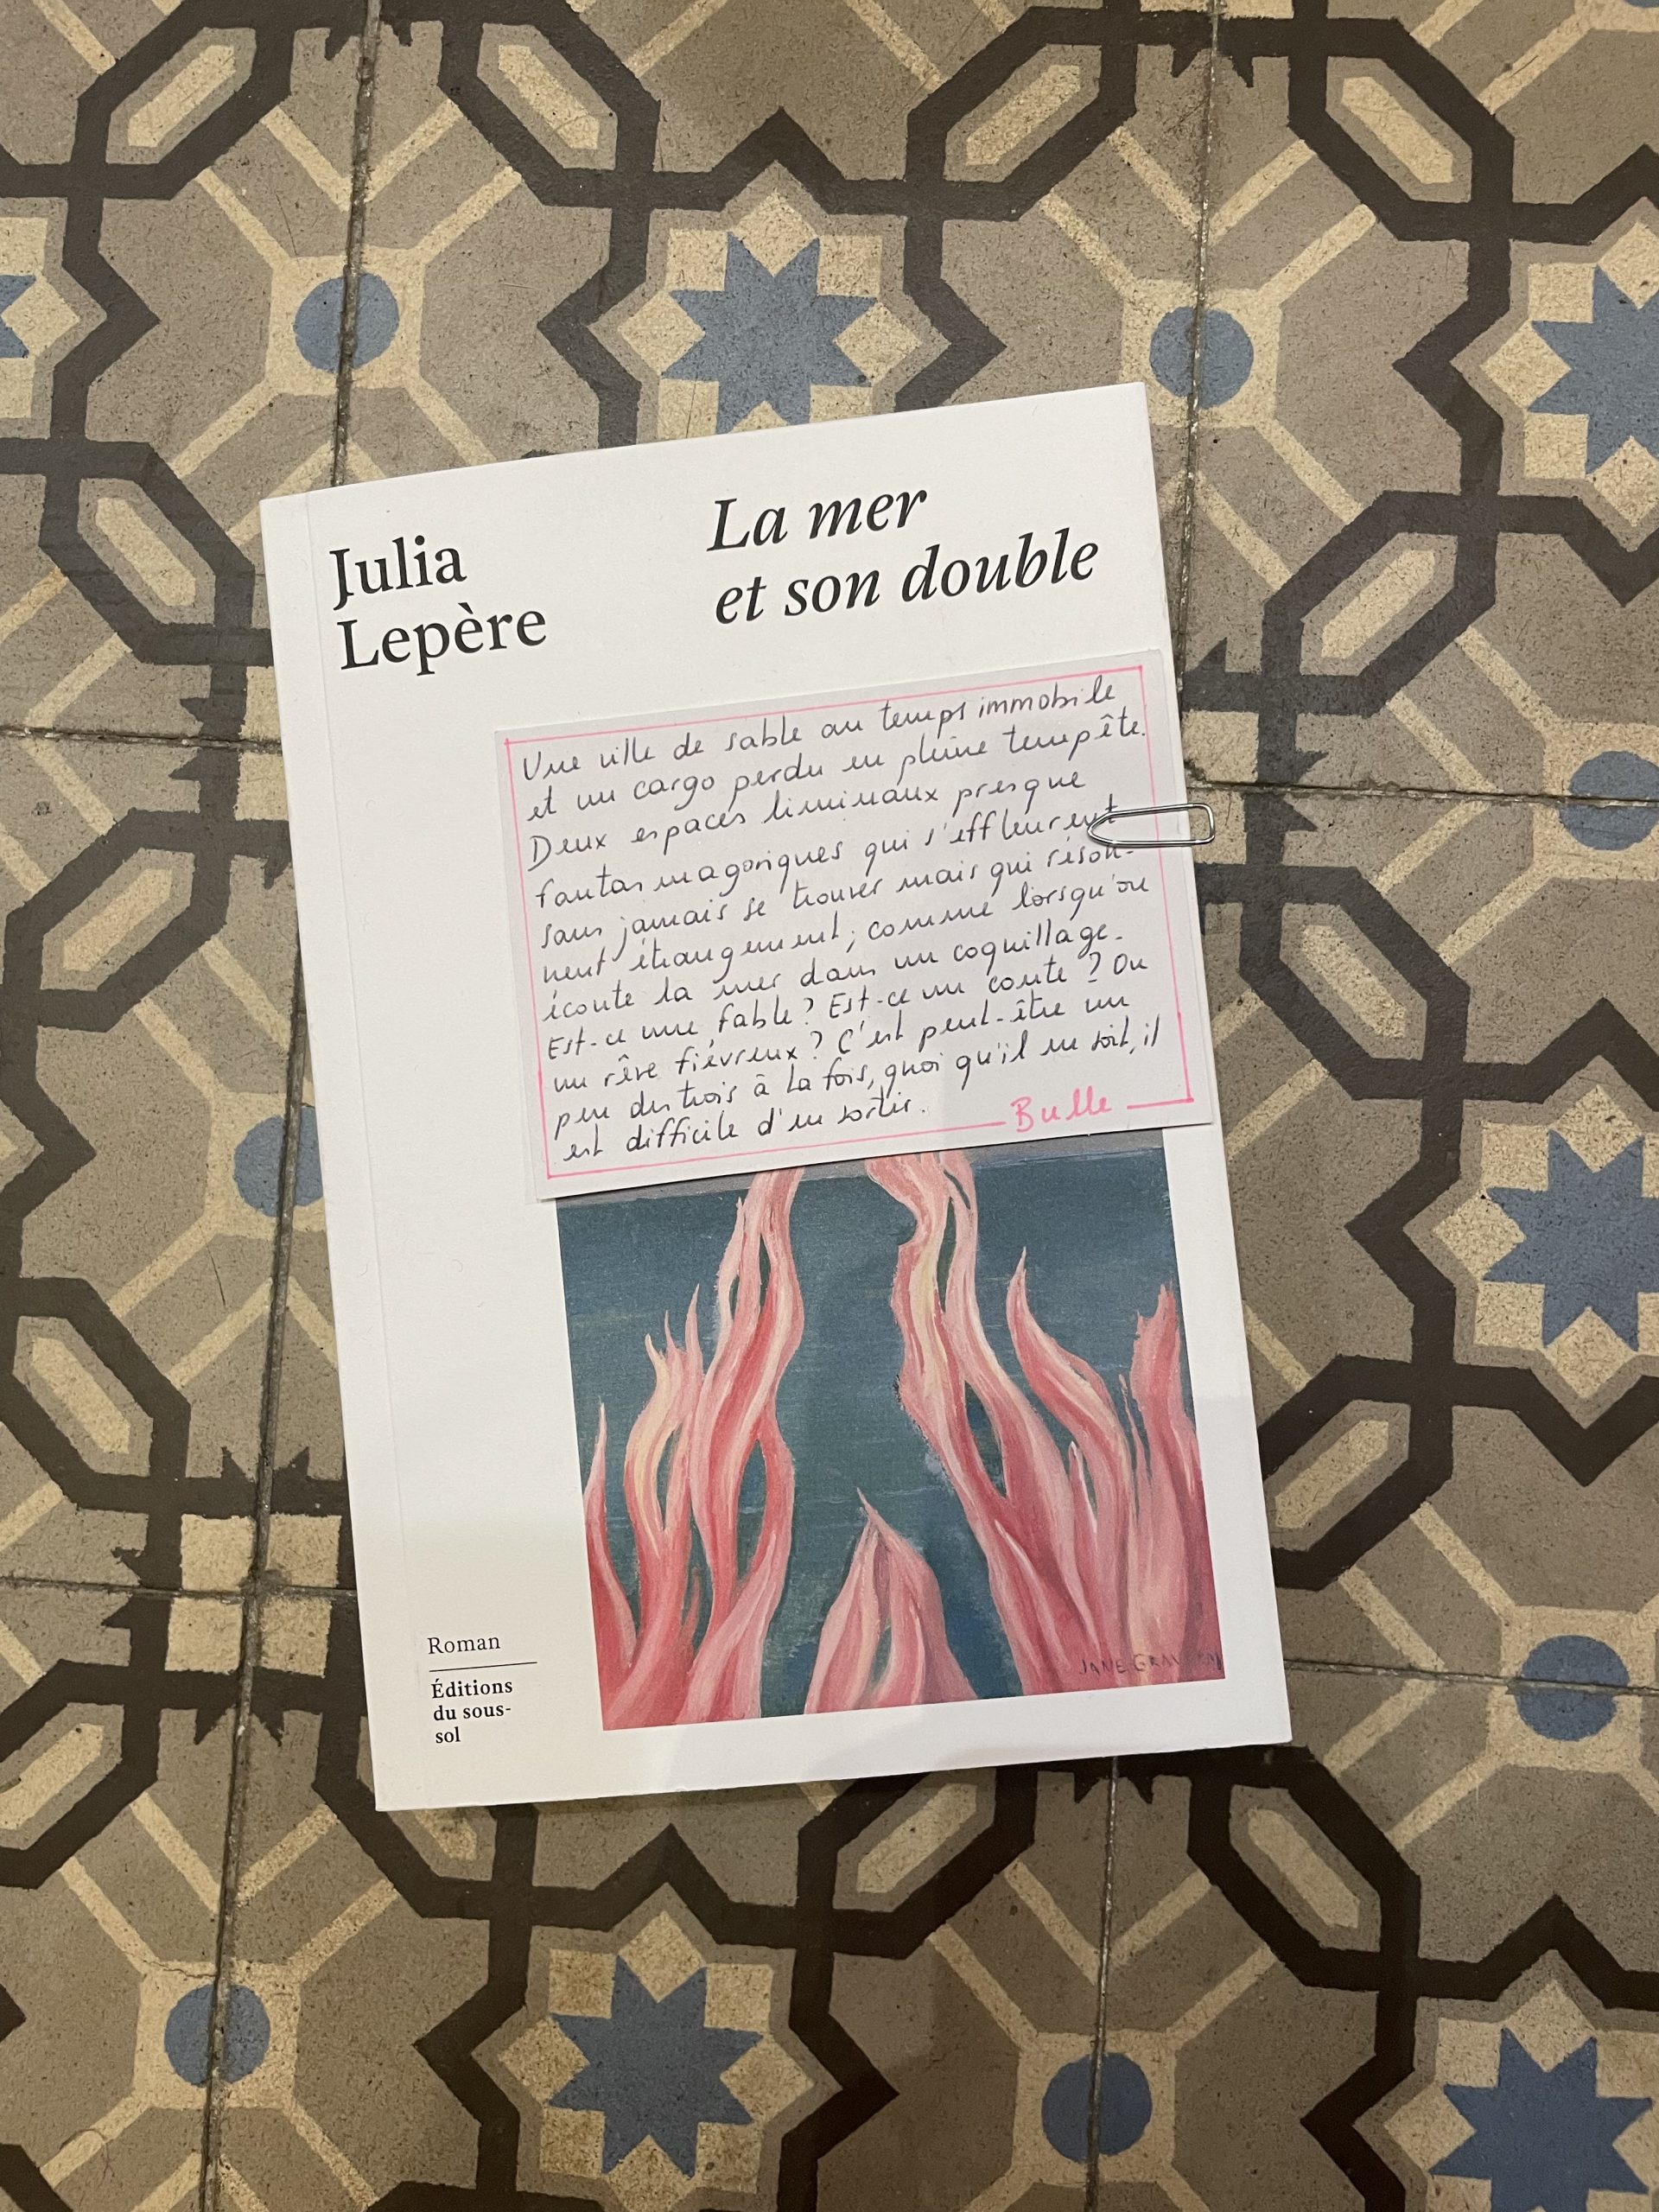 Julia
Lepère
La mer
et son double
Une ville de sable au temps immobile
et un cargo perdu en pleine tempête.
Deux espaces liminaux presque
fantasmagoriques qui s'effleurent
sans jamais se trouver mais qui réson-
nent étrangement, comme lorsqu'on
écoute la mer dans un coquillage.
Est-ce une fable ? Est-ce un conte ? Ou
un rêve fiévreux ? C'est peut-être un
peu des trois à la fois, quoi qu'il en soit, il
est difficile d'en sortir.
Bulle
Roman
Éditions
du sous-
sol
JANE GRAVEROL